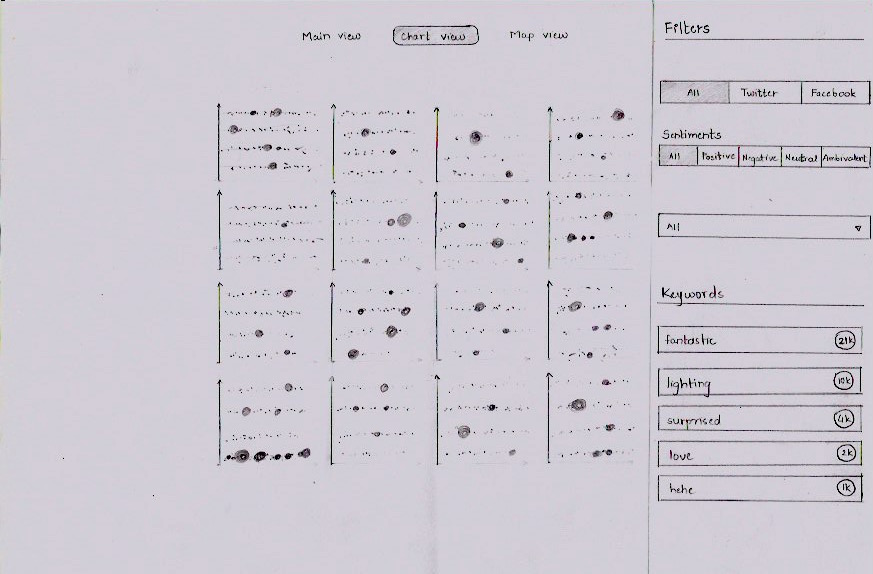 Main view Chart view Map view
Filters
All Twitter Facebook
Sentiments
All Positive Negative Neutral Ambivalent
All
Keywords
fantastic 21k
lighting 10k
surprised 4k
love 2k
hehe 1k